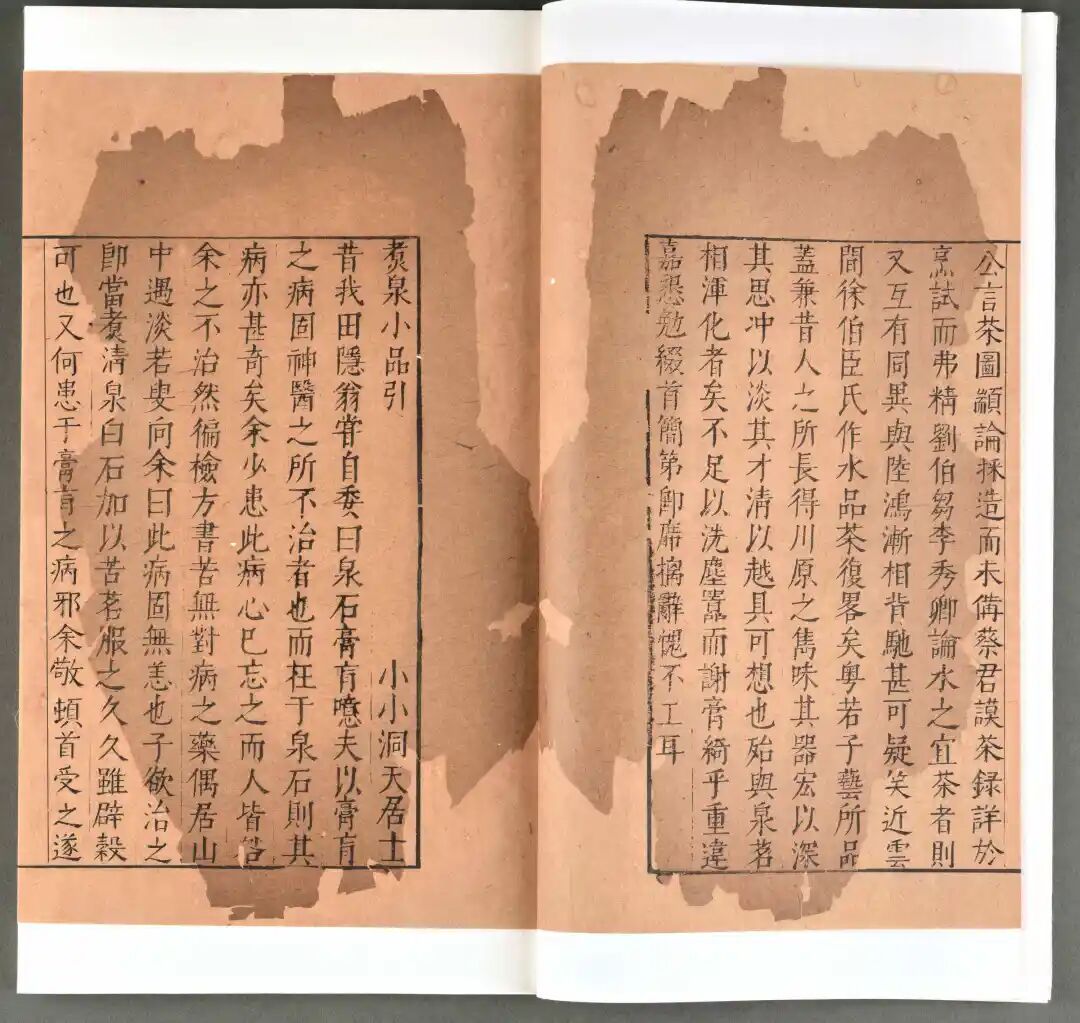 公言茶圖顓論採造而未備蔡君謨茶録詳於
烹試而弗精劉伯芻李秀卿論水之宜茶者則
又互有同異與陸鴻漸相背馳甚可疑笑近雲
間徐伯臣氏作水品茶復畧矣粤若子藝所品
蓋兼昔人之所長得川原之雋味其器宏以深
其思冲以淡其才清以越具可想也殆與泉茗
相渾化者矣不足以洗塵囂而謝膏綺乎重違
嘉懇勉綴首簡第卽席摛辭愧不工耳
煑泉小品引
小小洞天居士
昔我田隱翁甞自委曰泉石膏肓噫夫以膏肓
之病固神醫之所不治者也而在于泉石則其
病亦甚奇矣余少患此病心已忘之而人皆咎
余之不治然徧檢方書苦無對病之藥偶居山
中遇淡若叟向余曰此病固無恙也子欲治之
卽當煑清泉白石加以苦茗服之久久雖辟穀
可也又何患于膏肓之病邪余敬頓首受之遂